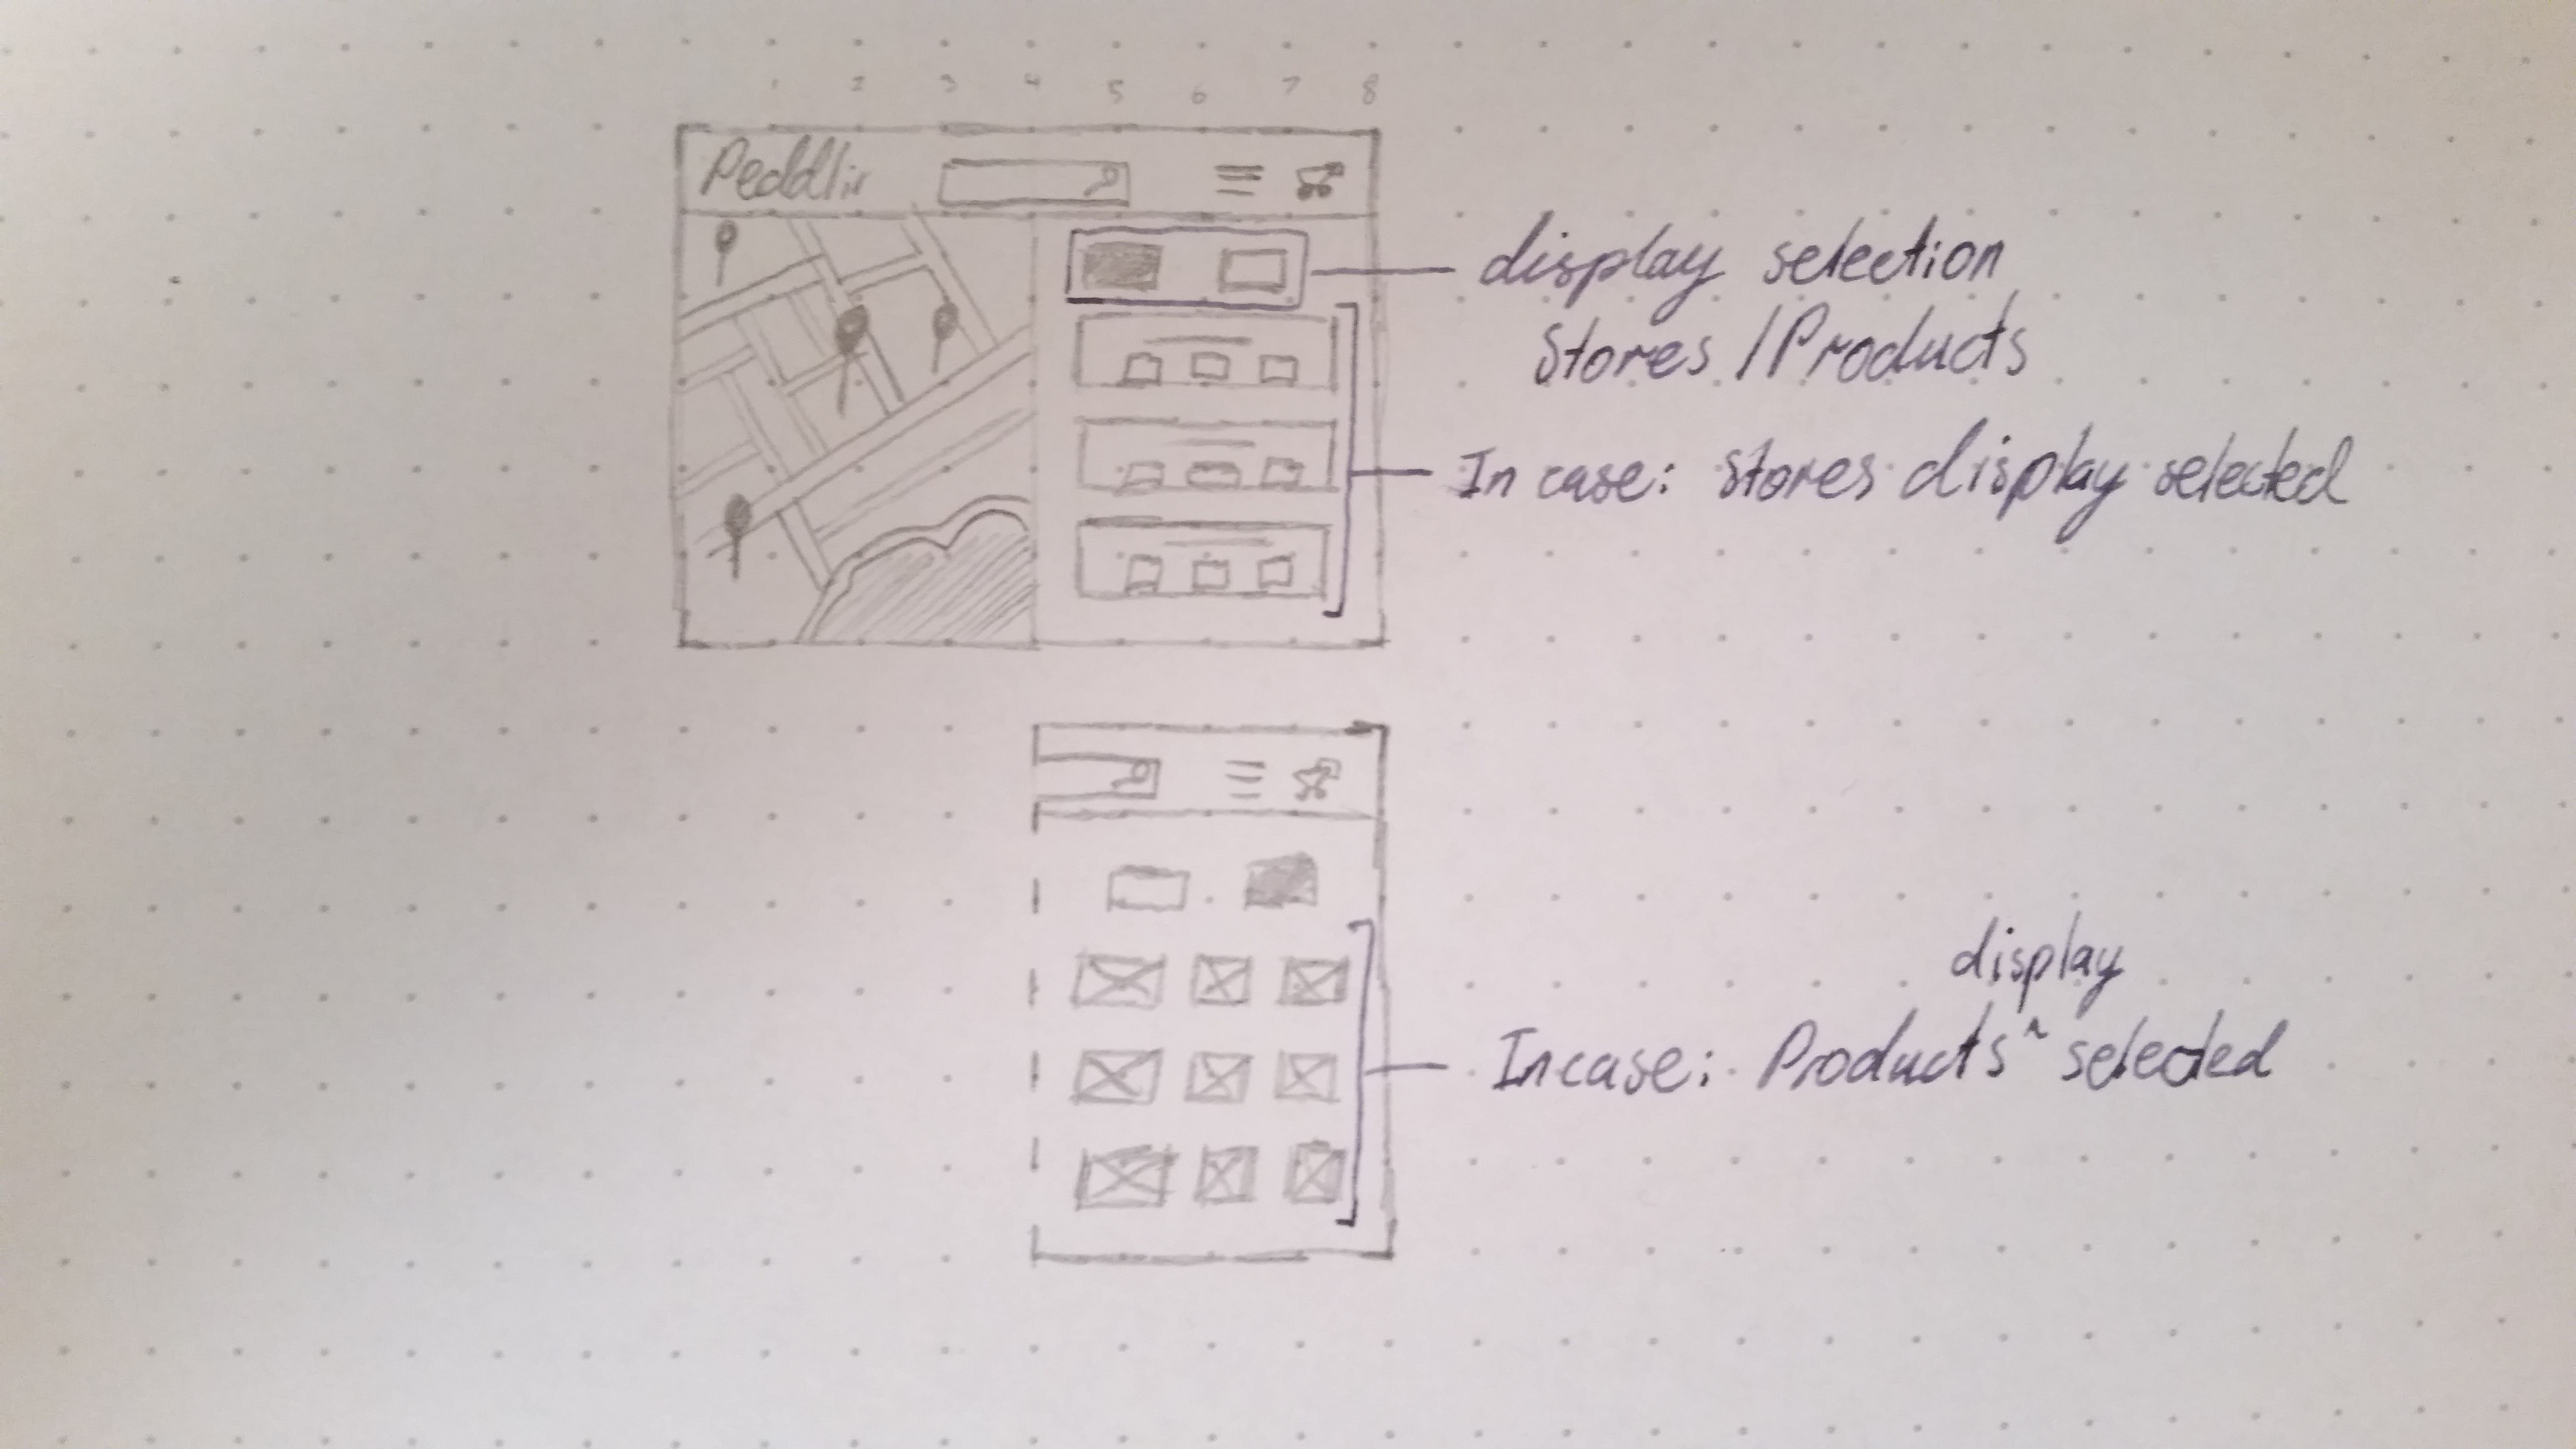 1 2 3 4 5 6 7 8
Peddlir
display selection
Stores / Products
In case: Stores display selected
display
In case: Products ^ selected